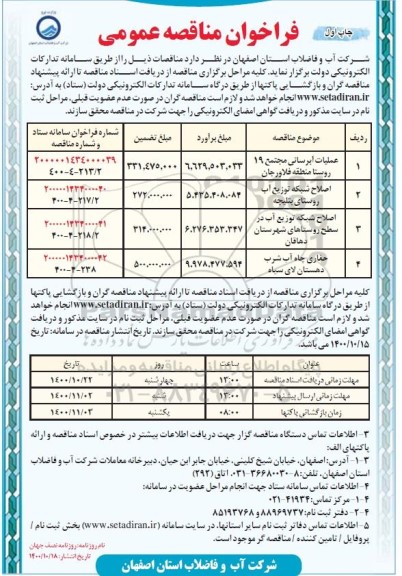 چاپ اول
فراخوان مناقصه عمومی
شرکت آب و فاضلاب استان اصفهان در نظر دارد مناقصات ذیل را از طریق سامانه تدارکات
الکترونیکی دولت برگزار نماید. کلیه مراحل برگزاری مناقصه از دریافت اسناد مناقصه تا ارائه پیشنهاد
مناقصه گران و بازگشایی پاکتها از طریق درگاه سامانه تدارکات الکترونیکی دولت (ستاد) به آدرس:
www.setadiran.ir انجام خواهد شد و لازم است مناقصه گران در صورت عدم عضویت قبلی، مراحل ثبت
نام در سایت مذکور و دریافت گواهی امضای الکترونیکی را جهت شرکت در مناقصه محقق سازند.
ردیف موضوع مناقصه مبلغ برآورد مبلغ تضمین شماره فراخوان سامانه ستاد و شماره مناقصه
۱ عملیات آبرسانی مجتمع ۱۹ روستا منطقه فلاورجان ۶.۶۲۹.۵۰۳.۰۳۳ ۳۳۱.۴۷۵.۰۰۰ ۲۰۰۰۰۰۱۴۳۴۰۰۰۰۳۹
۴۰۰-۴-۲۱۳/۲
۲ اصلاح شبکه توزیع آب روستای پتلیجه ۵.۴۳۵.۴۰۸.۰۸۴ ۲۷۲.۰۰۰.۰۰۰
۴۰۰-۴-۲۱۷/۲
۳ اصلاح شبکه توزیع آب در سطح روستاهای شهرستان دهاقان ۶.۲۷۶.۳۵۲.۳۴۷ ۳۱۴.۰۰۰.۰۰۰
۴۰۰-۴-۲۱۸/۲
۴ حفاری چاه آب شرب دهستان لای سیاه ۹.۹۷۸.۴۷۷.۵۹۴ ۵۰۰.۰۰۰.۰۰۰
۴۰۰-۴-۲۳۸
کلیه مراحل برگزاری مناقصه از دریافت اسناد مناقصه تا ارائه پیشنهاد مناقصه گران و بازگشایی پاکتها
از طریق درگاه سامانه تدارکات الکترونیکی دولت (ستاد) به آدرس www.setadiran.ir انجام خواهد
شد و لازم است مناقصه گران در صورت عدم عضویت قبلی، مراحل ثبت نام در سایت مذکور و دریافت
گواهی امضای الکترونیکی را جهت شرکت در مناقصه محقق سازند. تاریخ انتشار مناقصه در سامانه: تاریخ
۱۴۰۰/۱۰/۱۵ می باشد.
عنوان ساعت روز تاریخ
مهلت زمانی دریافت اسناد مناقصه ۱۳:۰۰ چهارشنبه ۱۴۰۰/۱۰/۲۲
مهلت زمانی ارسال پیشنهاد ۱۳:۰۰ شنبه ۱۴۰۰/۱۱/۰۲
زمان بازگشایی پاکتها ۰۸:۰۰ یکشنبه ۱۴۰۰/۱۱/۰۳
۳- اطلاعات تماس دستگاه مناقصه گزار جهت دریافت اطلاعات بیشتر در خصوص اسناد مناقصه و ارائه
پاکتهای الف:
۳-۱- آدرس: اصفهان، خیابان شیخ کلینی، خیابان جابر ابن حیان، دبیرخانه معاملات شرکت آب و فاضلاب
استان اصفهان، تلفن: ۸-۰۳۱-۳۶۶۸۰۰۳۰، اتاق (۲۹۲)
۴- اطلاعات تماس سامانه ستاد جهت انجام مراحل عضویت در سامانه:
۴-۱- مرکز تماس: ۰۲۱-۴۱۹۳۴
۴-۲- دفتر ثبت نام: ۸۸۹۶۹۷۳۷ و ۸۵۱۹۳۷۶۸
۵- اطلاعات تماس دفاتر ثبت نام سایر استانها، در سایت سامانه (www.setadiran.ir) بخش ثبت نام /
پروفایل / تامین کننده / مناقصه گر موجود است.
نام روزنامه: روزنامه نصف جهان
تاریخ انتشار: ۱۴۰۰/۱۰/۱۸
شرکت آب و فاضلاب استان اصفهان